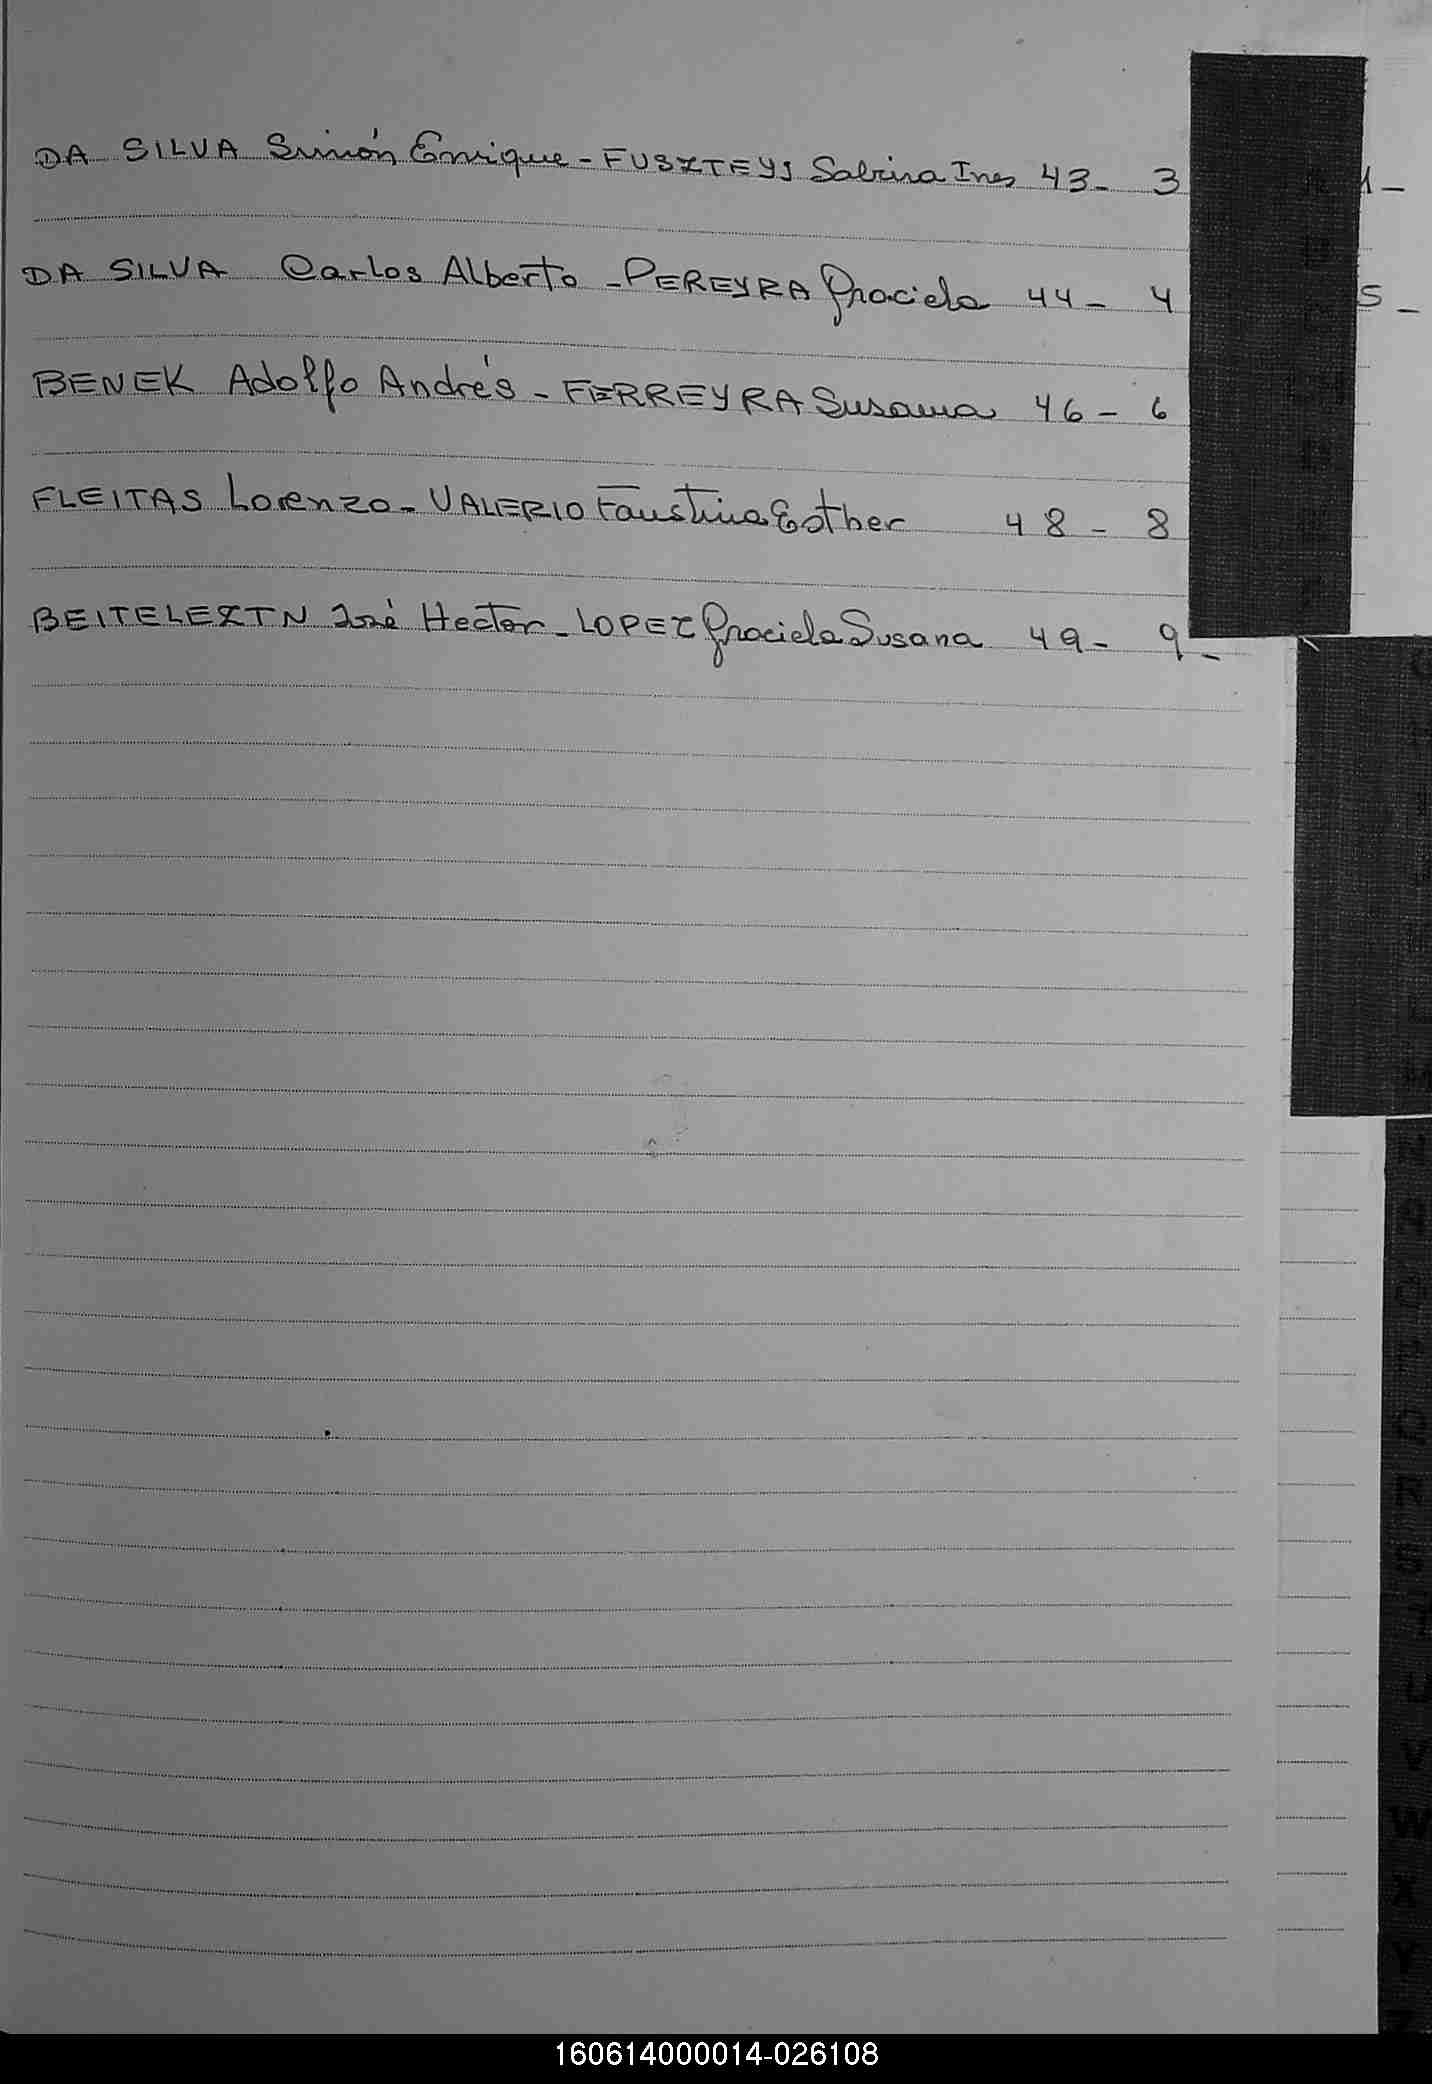 DA SILVA Simón Enrique - FUSZTEYS Sabrina Ines 43 - 3
DA SILVA Carlos Alberto - PEREYRA Graciela 44 - 4 5 -
BENEK Adolfo Andrés - FERREYRA Susana 46 - 6
FLEITAS Lorenzo - VALERIO Faustina Esther 48 - 8
BEITELEZTN José Hector - LOPEZ Graciela Susana 49 - 9 -
160614000014-026108